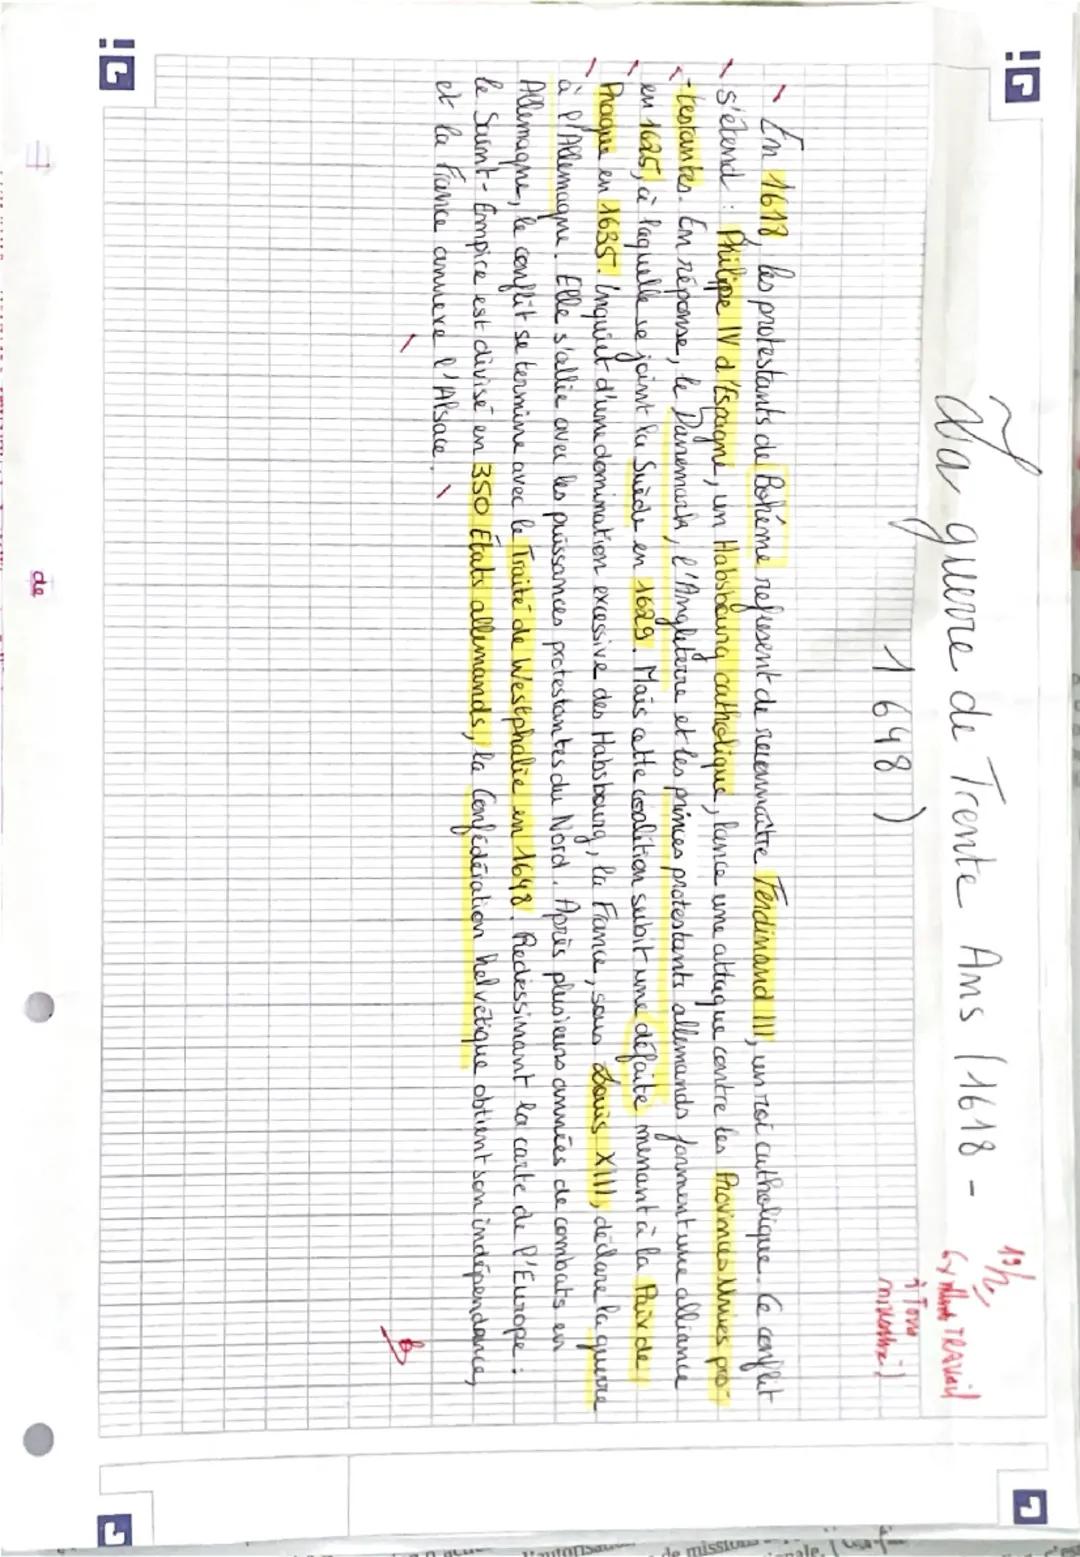 La guerre de Trente Ans (1618 -
1648)
TRAVAIL
En 1618, les protestants de Bohême refusent de reconnaître Ferdinand III, un roi catholique. Ce conflit
s'étend : Philippe IV d'Espagne, un Habsbourg catholique, lance une attaque contre les Provinces Unies pro-
-testantes. En réponse, le Danemark, l'Angleterre et les princes protestants allemands forment une alliance
en 1625, à laquelle se joint la Suède en 1629. Mais cette coalition subit une défaite menant à la Paix de
Prague en 1635. Inquiet d'une domination excessive des Habsbourg, la France, sous Louis XIII, déclare la guerre
à l'Allemagne. Elle s'allie avec les puissances protestantes du Nord. Après plusieurs années de combats en
Allemagne, le conflit se termine avec le Traité de Westphalie en 1648. Redessinant la carte de l'Europe :
le Saint-Empire est divisé en 350 États allemands, la Confédération helvétique obtient son indépendance,
et la France annexe l'Alsace.
de
de missions